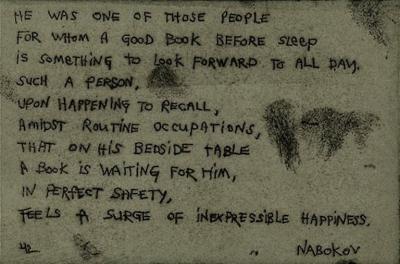 HE WAS ONE OF THOSE PEOPLE
FOR WHOM A GOOD BOOK BEFORE SLEEP
IS SOMETHING TO LOOK FORWARD TO ALL DAY.
SUCH A PERSON,
UPON HAPPENING TO RECALL,
AMIDST ROUTINE OCCUPATIONS,
THAT ON HIS BEDSIDE TABLE
A BOOK IS WAITING FOR HIM,
IN PERFECT SAFETY,
FEELS A SURGE OF INEXPRESSIBLE HAPPINESS.
42 NABOKOV